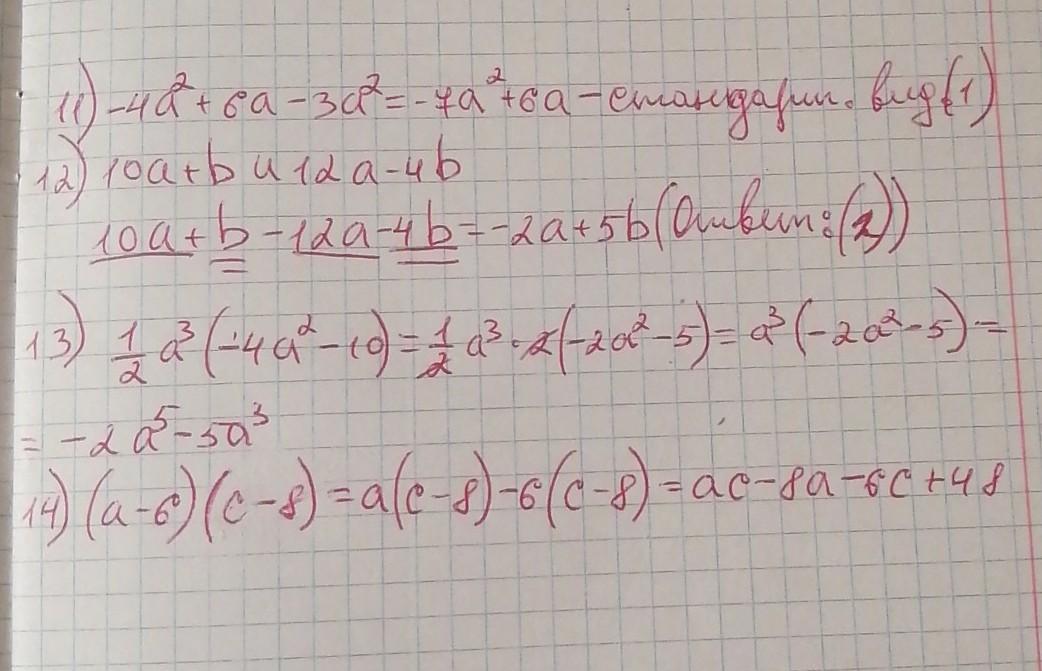 11) -4a² + 6a - 3a² = -7a² + 6a - стандарт. вид (1)
12) 10a + b и 12a - 4b
10a + b - 12a - 4b = -2a + 5b (Ответ: (2))
13) 1/2 a³ (-4a² - 10) = 1/2 a³ · 2(-2a² - 5) = a³ (-2a² - 5) =
= -2a⁵ - 5a³
14) (a - 6)(c - 8) = a(c - 8) - 6(c - 8) = ac - 8a - 6c + 48